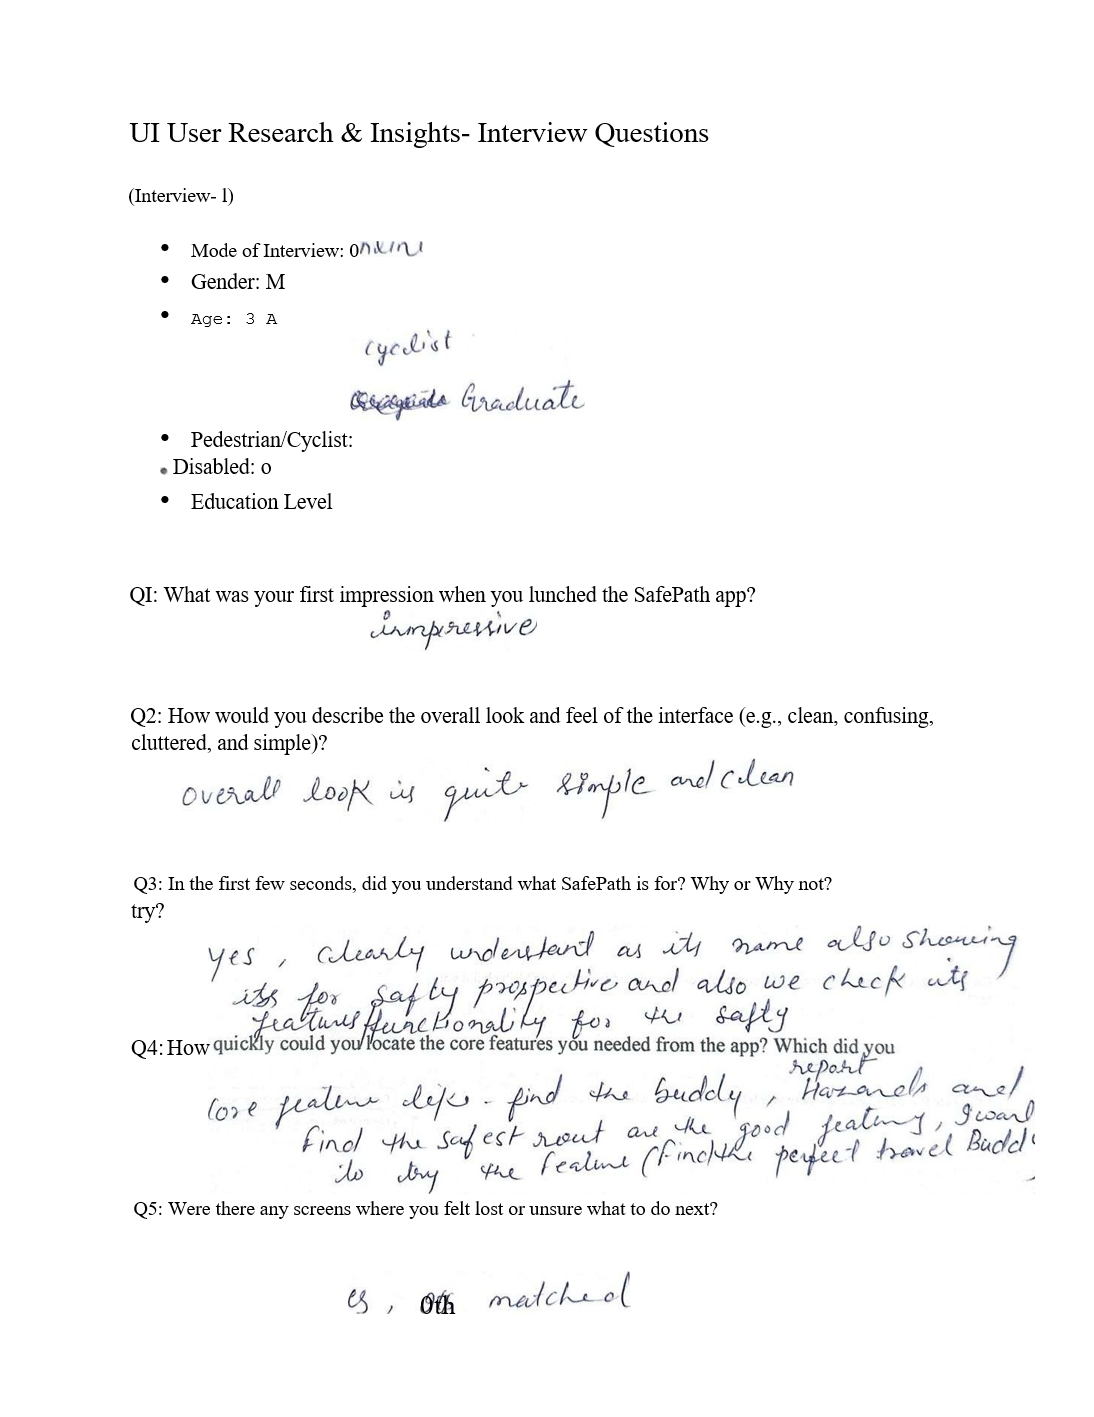 UI User Research & Insights- Interview Questions
(Interview- l)
• Mode of Interview: 0
• Gender: M
• Age: 3 A
cyclist
Graduate
• Pedestrian/Cyclist:
• Disabled: o
• Education Level
QI: What was your first impression when you lunched the SafePath app?
impressive
Q2: How would you describe the overall look and feel of the interface (e.g., clean, confusing,
cluttered, and simple)?
overall look is quite simple and clean
Q3: In the first few seconds, did you understand what SafePath is for? Why or Why not?
try?
yes, clearly understand as its name also showing
its for safty prospective and also we check its
features/functionality for the safty
Q4: How quickly could you locate the core features you needed from the app? Which did you
report
core feature like - find the buddy, Hazards and
find the safest rout are the good featurs, I want
to try the feature (Find the perfect travel Budd
Q5: Were there any screens where you felt lost or unsure what to do next?
es, 0th matched